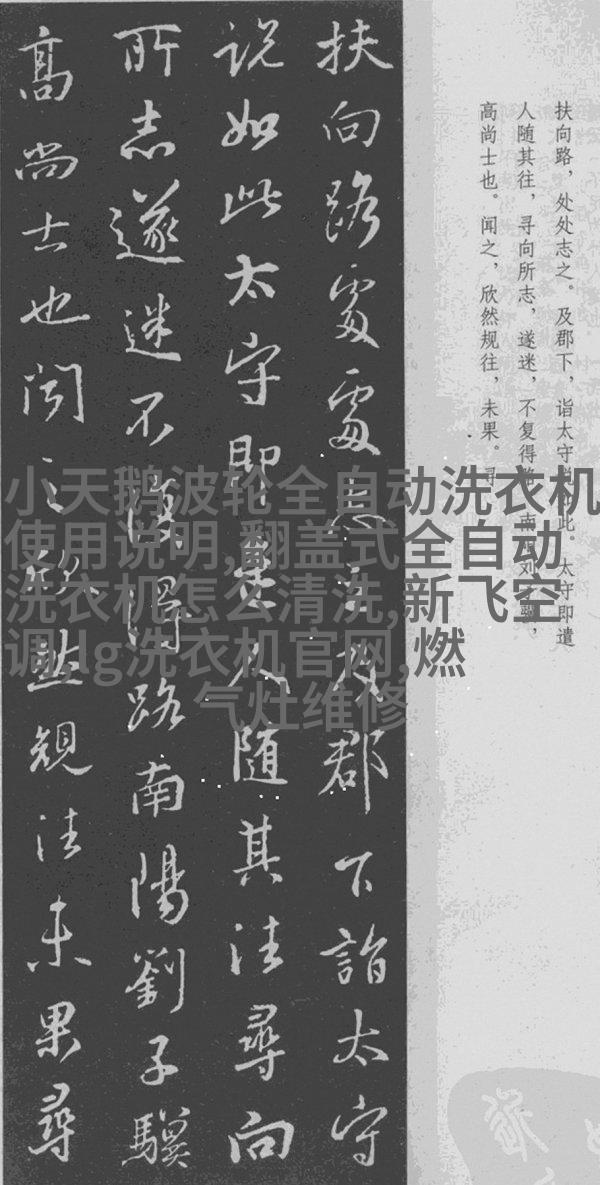 扶向路，处处志之。及郡下，诣太守说如此。太守即遣
人随其往，寻向所志，遂迷，不复得路。南阳刘子骥，
高尚士也。闻之，欣然规往，未果。寻
扶向路處處志之及郡下詣太守
説如此太守即遣人随其往尋向
所志遂迷不復得路南陽劉子驥
高尚士也聞之欣然規往未果尋
小天鹅波轮全自动洗衣机
使用说明,翻盖式全自动
洗衣机怎么清洗,新飞空
调,lg洗衣机官网,燃
气灶维修